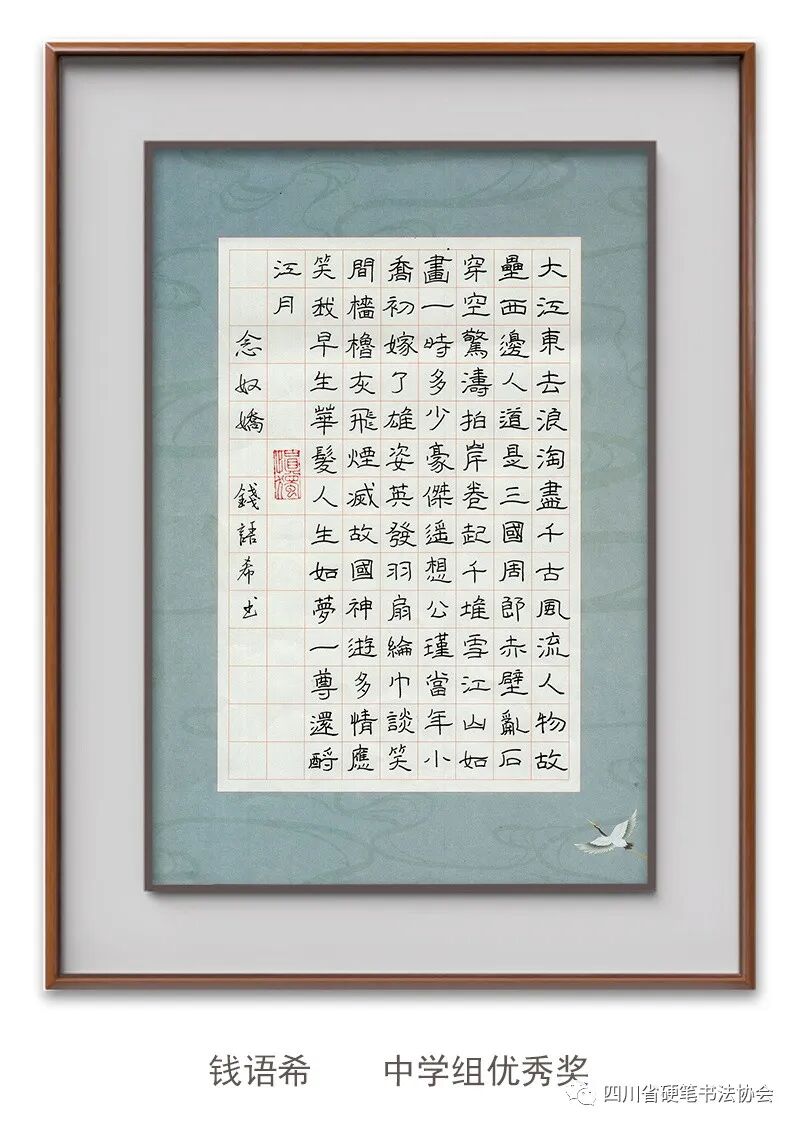 大江東去浪淘盡千古風流人物故
壘西邊人道是三國周郎赤壁亂石
穿空驚濤拍岸卷起千堆雪江山如
畫一時多少豪傑遥想公瑾當年小
喬初嫁了雄姿英發羽扇綸巾談笑
間檣櫓灰飛煙滅故國神遊多情應
笑我早生華髮人生如夢一尊還酹
江月
念奴嬌 錢語希书
钱语希 中学组优秀奖
四川省硬笔书法协会